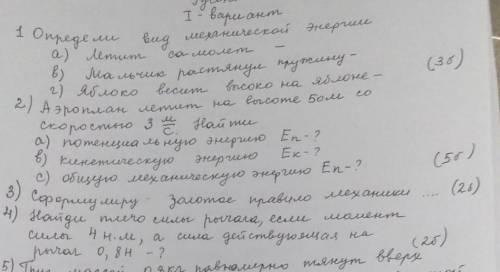 I - вариант
1 Определи вид механической энергии
а) Летит самолет -
в) Мальчик растянул пружину -
г) Яблоко весит высоко на яблоне - (3б)
2) Аэроплан летит на высоте 50м со
скоростью 3 м/с. Найти
а) потенциальную энергию Еп-?
в) кинетическую энергию Ек-?
с) общую механическую энергию Еп-? (5б)
3) Сформулируй Золотое правило механики .... (2б)
4) Найди плечо силы рычага, если момент
силы 4 н.м, а сила действующая на
рычаг 0,8Н -? (2б)
5) Груз массой 0,8кг равномерно тянут вверх